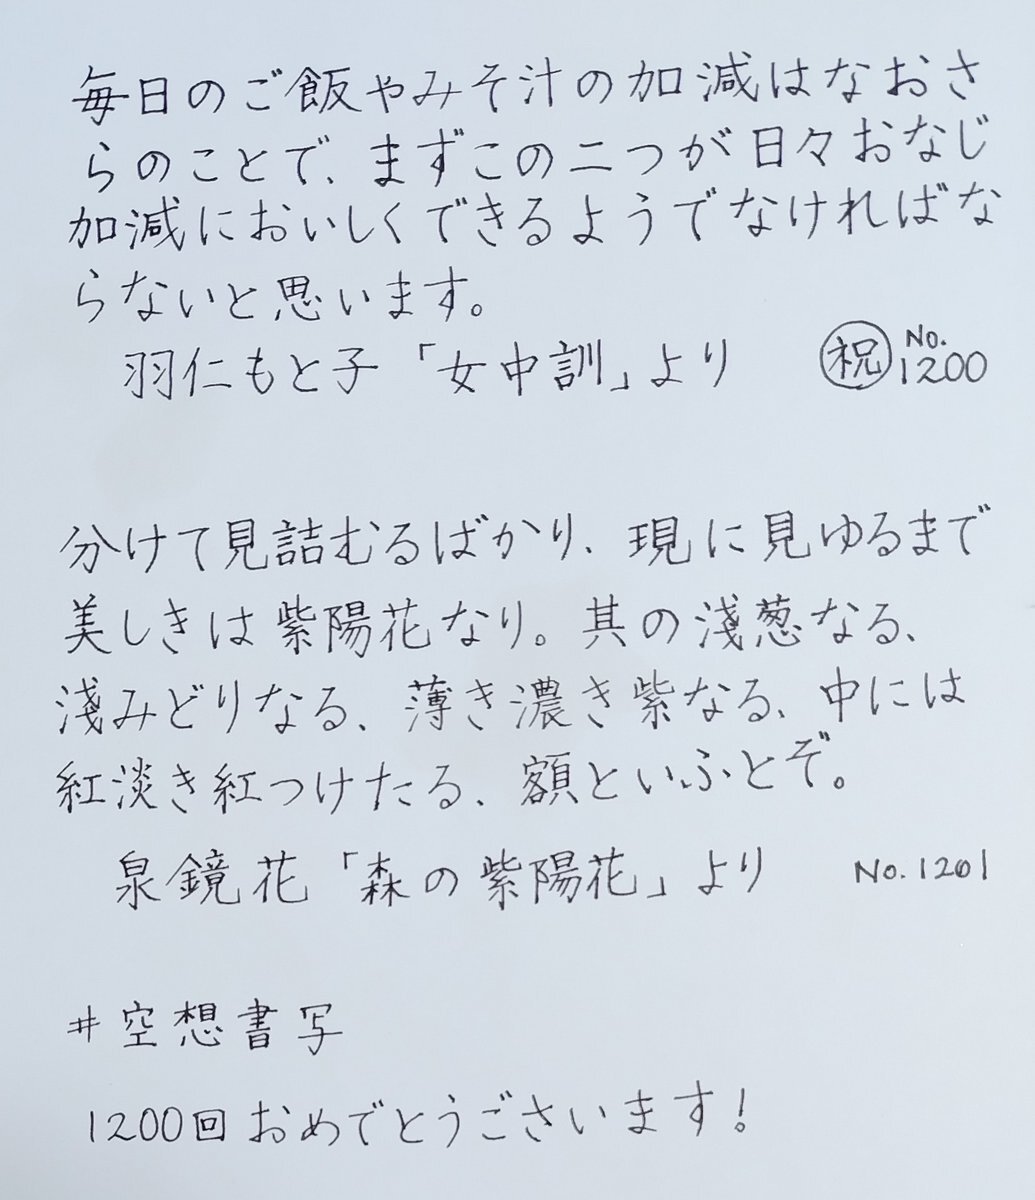 毎日のご飯やみそ汁の加減はなおさ
らのことで、まずこの二つが日々おなじ
加減においしくできるようでなければな
らないと思います。
羽仁もと子「女中訓」より ㊗ No.1200
分けて見詰むるばかり、現に見ゆるまで
美しきは紫陽花なり。其の淺葱なる、
淺みどりなる、薄き濃き紫なる、中には
紅淡き紅つけたる、額といふとぞ。
泉鏡花「森の紫陽花」より No.1201
#空想書写
1200回おめでとうございます!